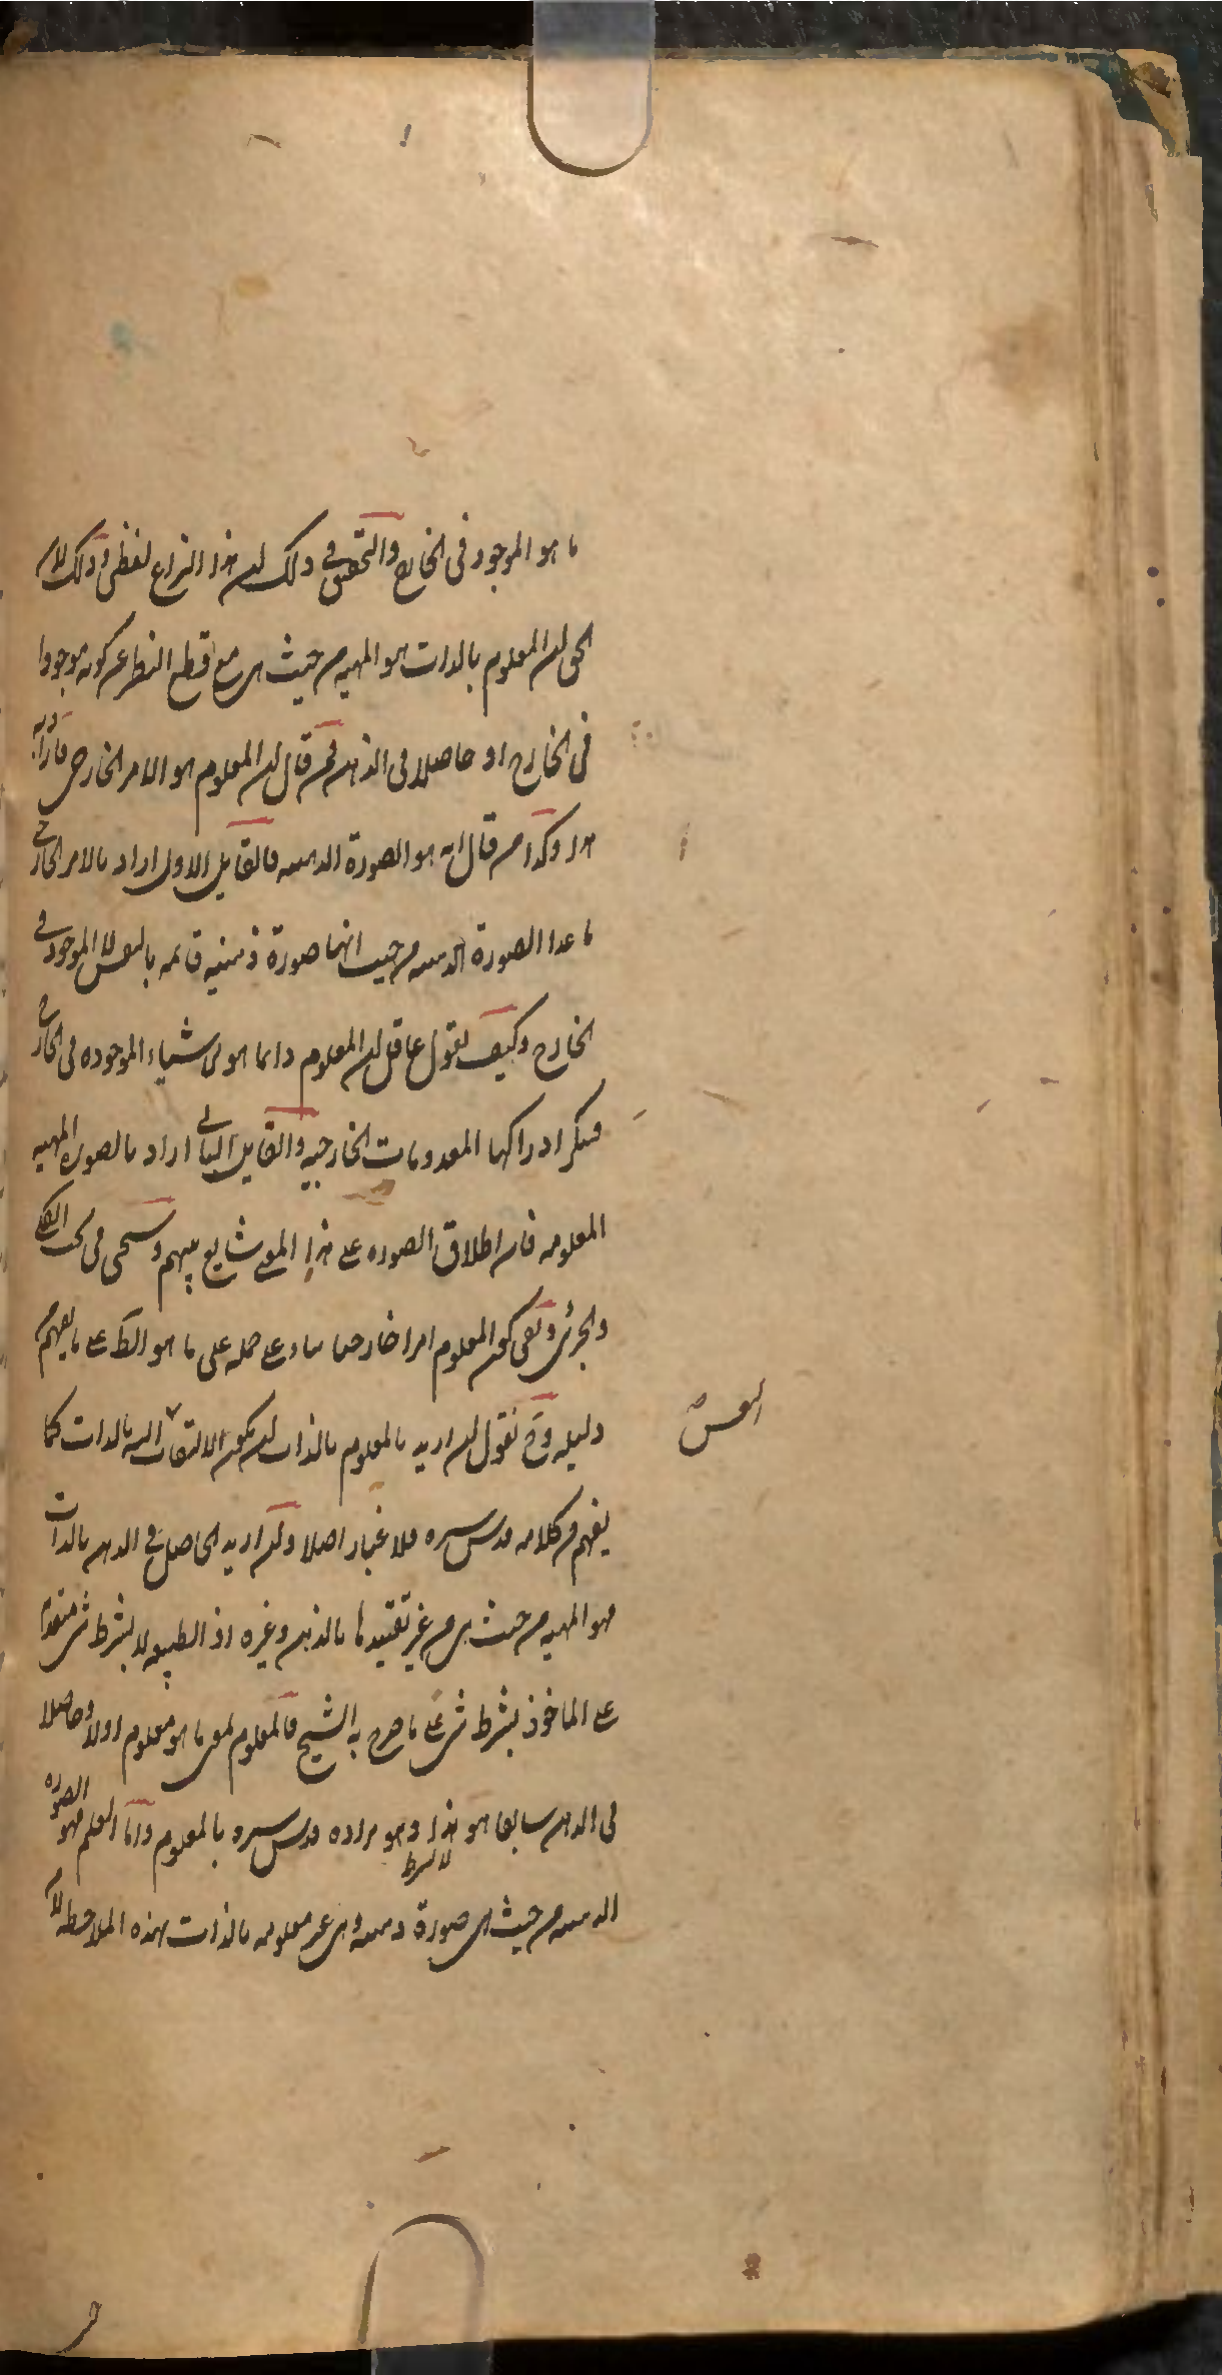 ما هو الموجود فى الخارج والتحقيق فى ذلك ان هذا النزاع لفظى وذلك لان
الحق ان المعلوم بالذات هو المهيه من حيث هى مع قطع النظر عن كونه موجودا
فى الخارج او حاصلا فى الذهن فمن قال ان المعلوم هو الامر الخارجى فاراد به
هذا وكذا من قال انه هو الصورة الذهنيه فالقايل الاول اراد بالامر الخارجى
ما عدا الصورة الذهنيه من حيث انها صورة ذهنيه قائمه بالنفس لا الموجود فى
الخارج وكيف يقول عاقل ان المعلوم دائما هو الاشياء الموجوده فى الخارج
فينكر ادراكها المعدومات الخارجيه والقايل الثانى اراد بالصوره المهيه
المعلومه فان اطلاق الصوره على هذا المعنى شايع بينهم وسيجئ فى بحث الكلى
والجزئى ونفى كون المعلوم امرا خارجيا بناء على حمله على ما هو الظ على ما يفهم من
دليله وح نقول ان اريد بالمعلوم بالذات ان يكون الالتفات اليه بالذات كما
يفهم من كلامه قدس سره فلا غبار اصلا وان اريد الحاصل فى الذهن بالذات
فهو المهيه من حيث هى من غير تقييدها بالذهن وغيره اذ الطبيعه لا بشرط شئ متقدم
على الماخوذ بشرط شئ على ما صرح به الشيخ فالمعلوم بمعنى ما هو معلوم اولا وحاصلا
فى الذهن سابقا هو هذا وهو مراده قدس سره بالمعلوم واما العلم فهو الصوره
لا بشرط
الذهنيه من حيث هى صورة ذهنيه وهى غير معلومه بالذات بهذه الملاحظه لان
النفس